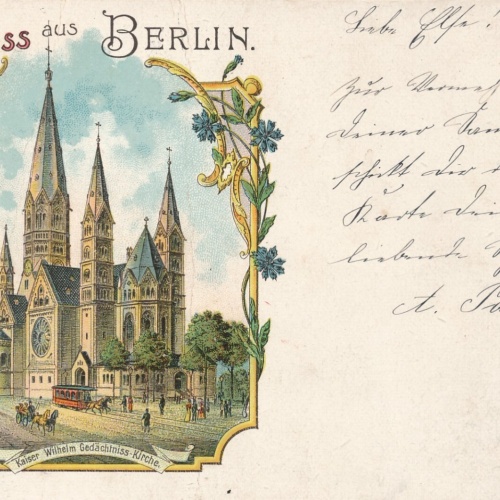 ss aus BERLIN.
Kaiser Wilhelm Gedächtniss-Kirche.
Liebe Else!
Zur Verme
Deiner Sam
schickt Dir d
Karte Dei
liebende
A. Pa